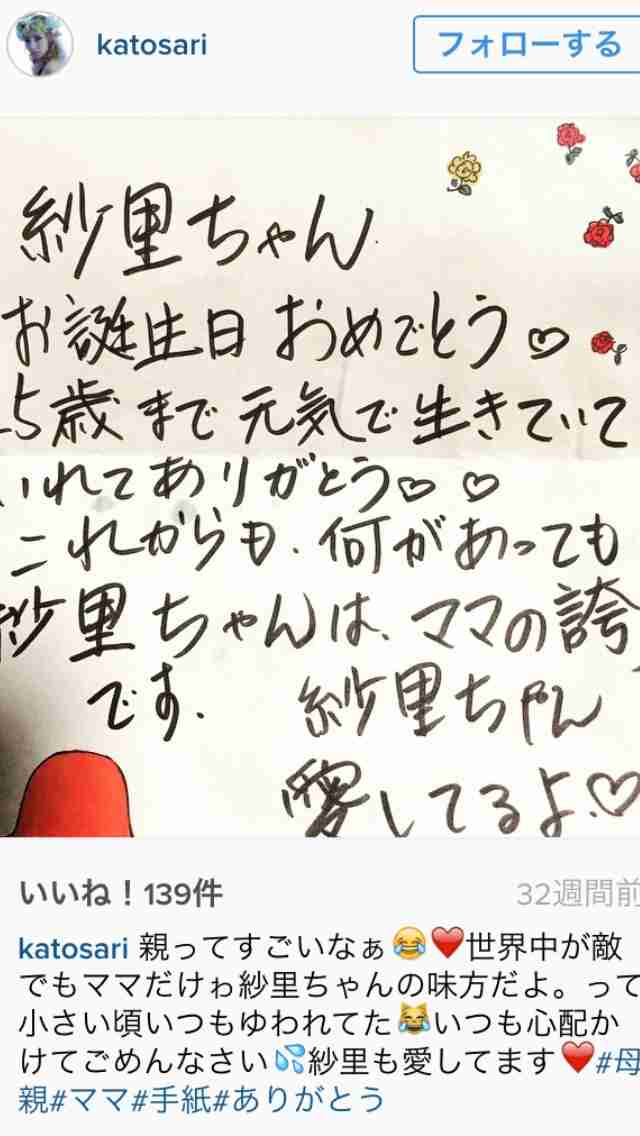 katosari
フォローする
紗里ちゃん
お誕生日おめでとう♡
25歳まで元気で生きていて
くれてありがとう♡♡
これからも、何があっても
紗里ちゃんは、ママの誇
です。 紗里ちゃん
愛してるよ♡
いいね！139件
32週間前
katosari 親ってすごいなぁ😂❤️世界中が敵
でもママだけゎ紗里ちゃんの味方だよ。って
小さい頃いつもゆわれてた😹いつも心配か
けてごめんなさい💦紗里も愛してます❤️#母
親#ママ#手紙#ありがとう